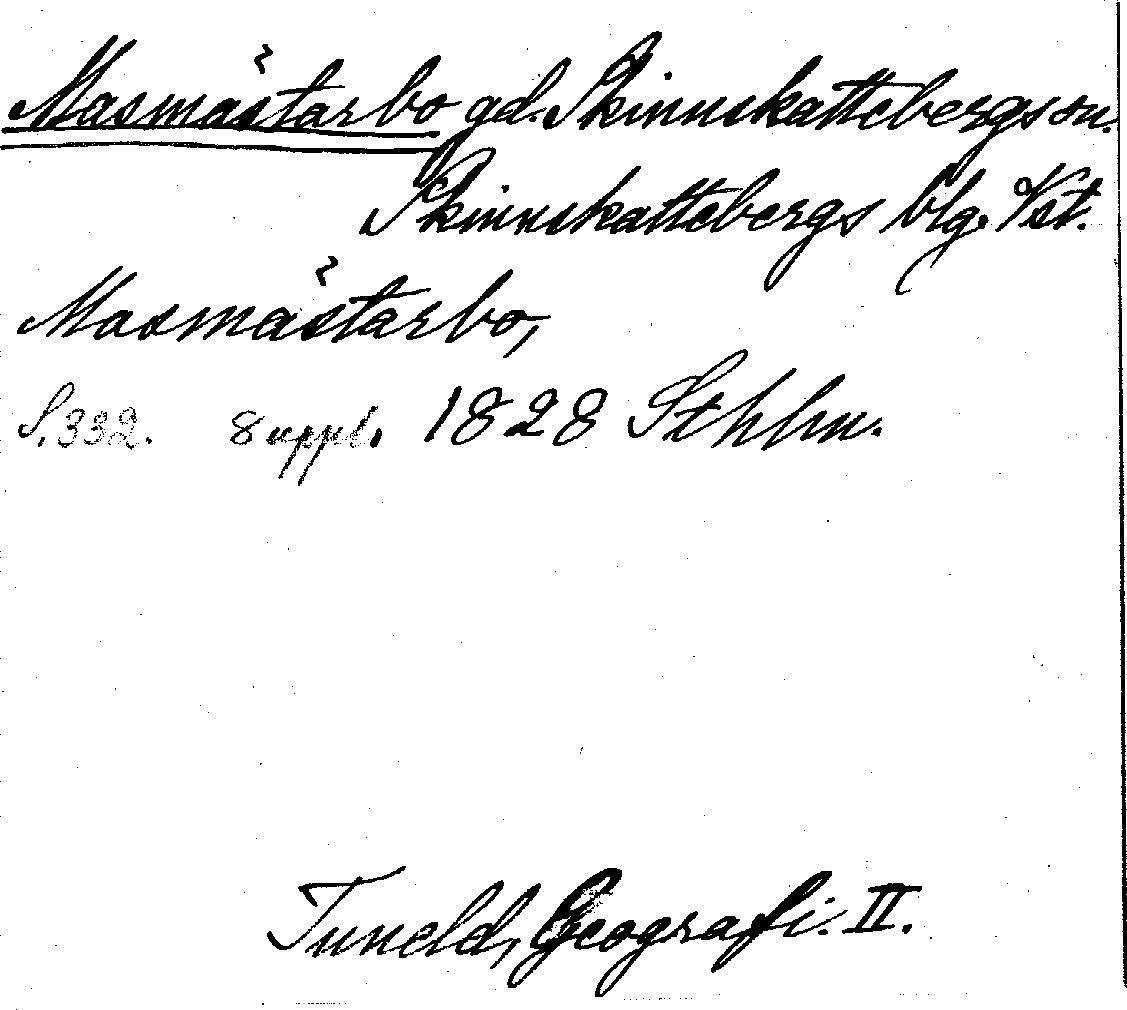 Masmästarbo gd. Skinnskattebergs sn.
Skinnskattebergs blg. Vst.
Masmästarbo,
S. 332. 8 uppl. 1828 Sthlm.
Tuneld, Geografi. II.